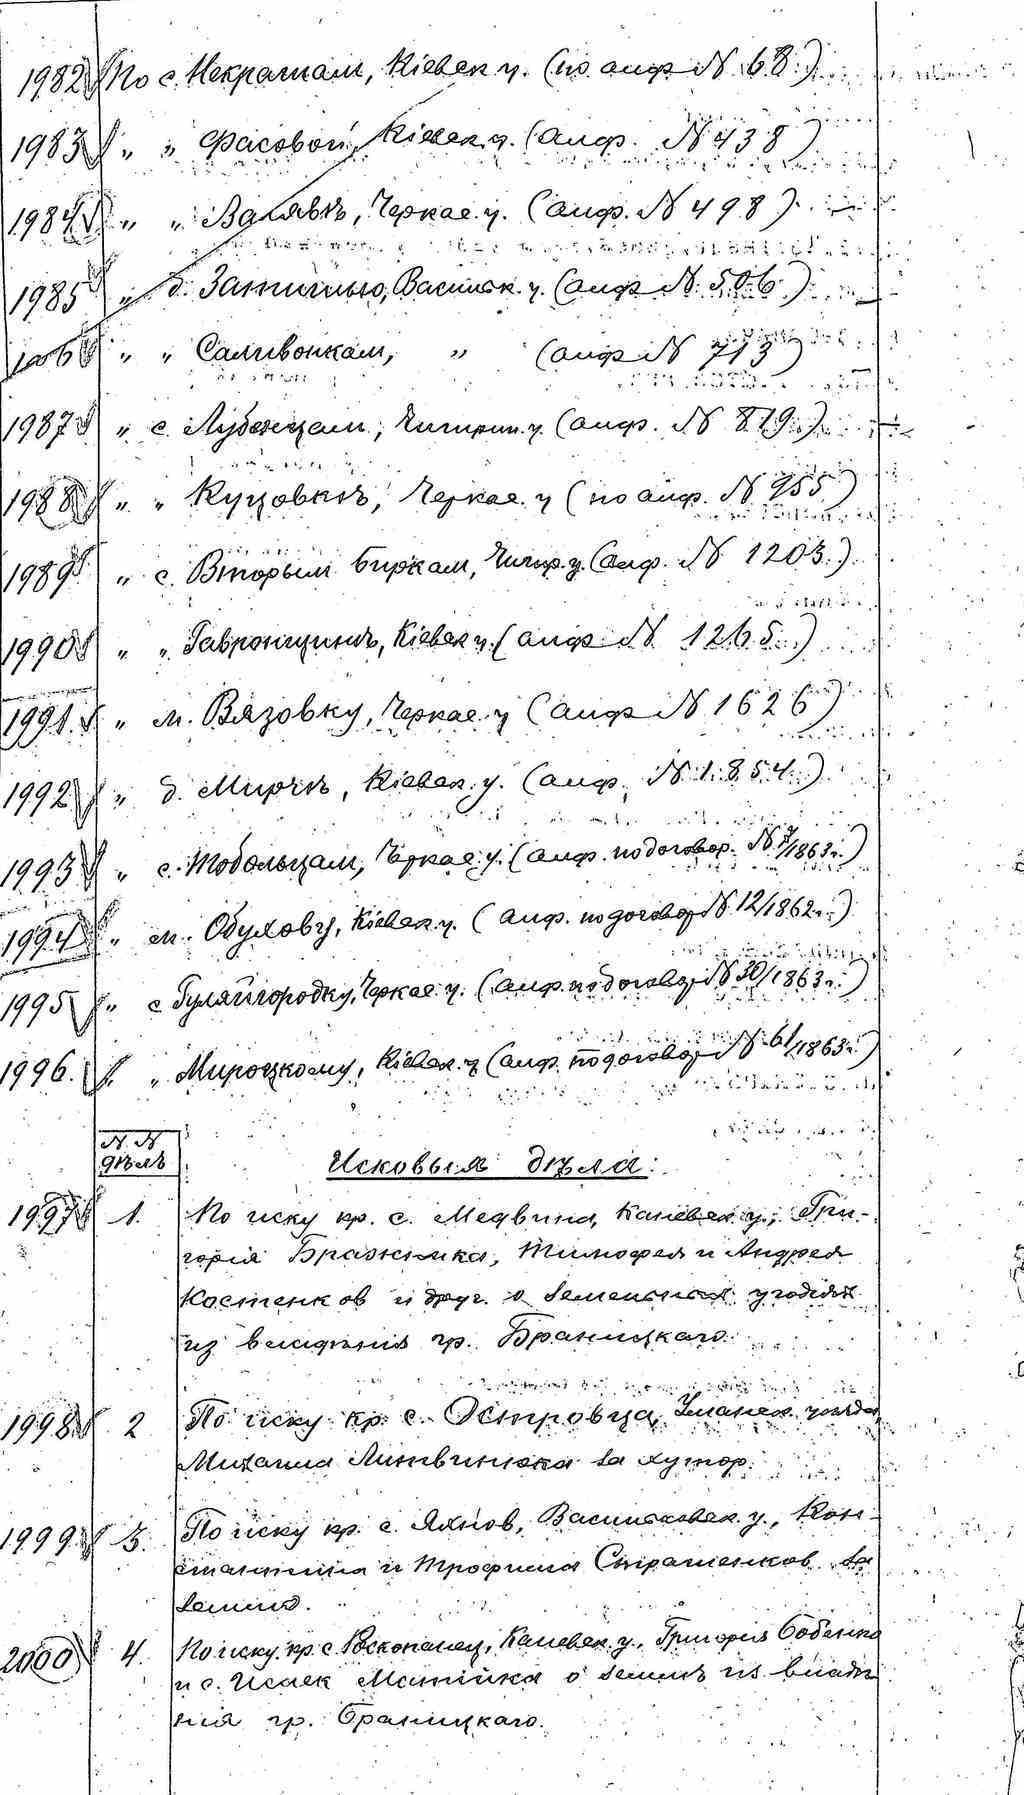 1982 По с. Некрашам, Кіевск у. (по алф № 68.)
1983 " " Фасовой, Кіевск у. (алф. № 438)
1984 " " Валявкѣ, Черкас. у. (алф. № 498)
1985 " д. Затишью, Васильк. у. (алф № 506)
1986 " " Саливонкам, " (алф № 713)
1987 " с. Лубенцам, Чигирин. у. (алф. № 819.)
1988 " " Куцовкѣ, Черкас. у (по алф. № 955)
1989 " с. Вторым Биркам, Чигир. у. (алф. № 1203.)
1990 " " Гавронщинѣ, Кіевск у. (алф № 1265)
1991. " м. Вязовку, Черкас. у (алф № 1626)
1992 " д. Мирчѣ, Кіевск. у. (алф. № 1854.)
1993 " с. Тобольцам, Черкас. у. (алф. по договор. № 7/1863 г.)
1994 " м. Обухову, Кіевск. у. (алф. по договор № 12/1862 г.)
1995 " с Гуляйгородку, Черкас. у. (алф. по договор № 30/1863 г.)
1996. " " Мироцкому, Кіевск. у (алф. по договор № 61/1863 г.)
№ №
дѣлъ
Исковыя дѣла:
1997 1. По иску кр. с. Медвина, Каневск. у., Гри-
горія Бражника, Тимофея и Андрея
Костенков и друг. о земельных угодіях
из владѣнія гр. Браницкаго.
1998 2 По иску кр. с. Островца, Уманск. уѣзда,
Михаила Литвинюка за хутор.
1999 3. По иску кр. с. Яхнов, Васильковск. у., Кон-
стантина и Трофима Страшенков за
землю.
2000 4. По иску кр. с. Росконанец, Каневск. у., Григорія Бабенко
и с. Исаек Матійка о землѣ из владѣ-
нія гр. Браницкаго.